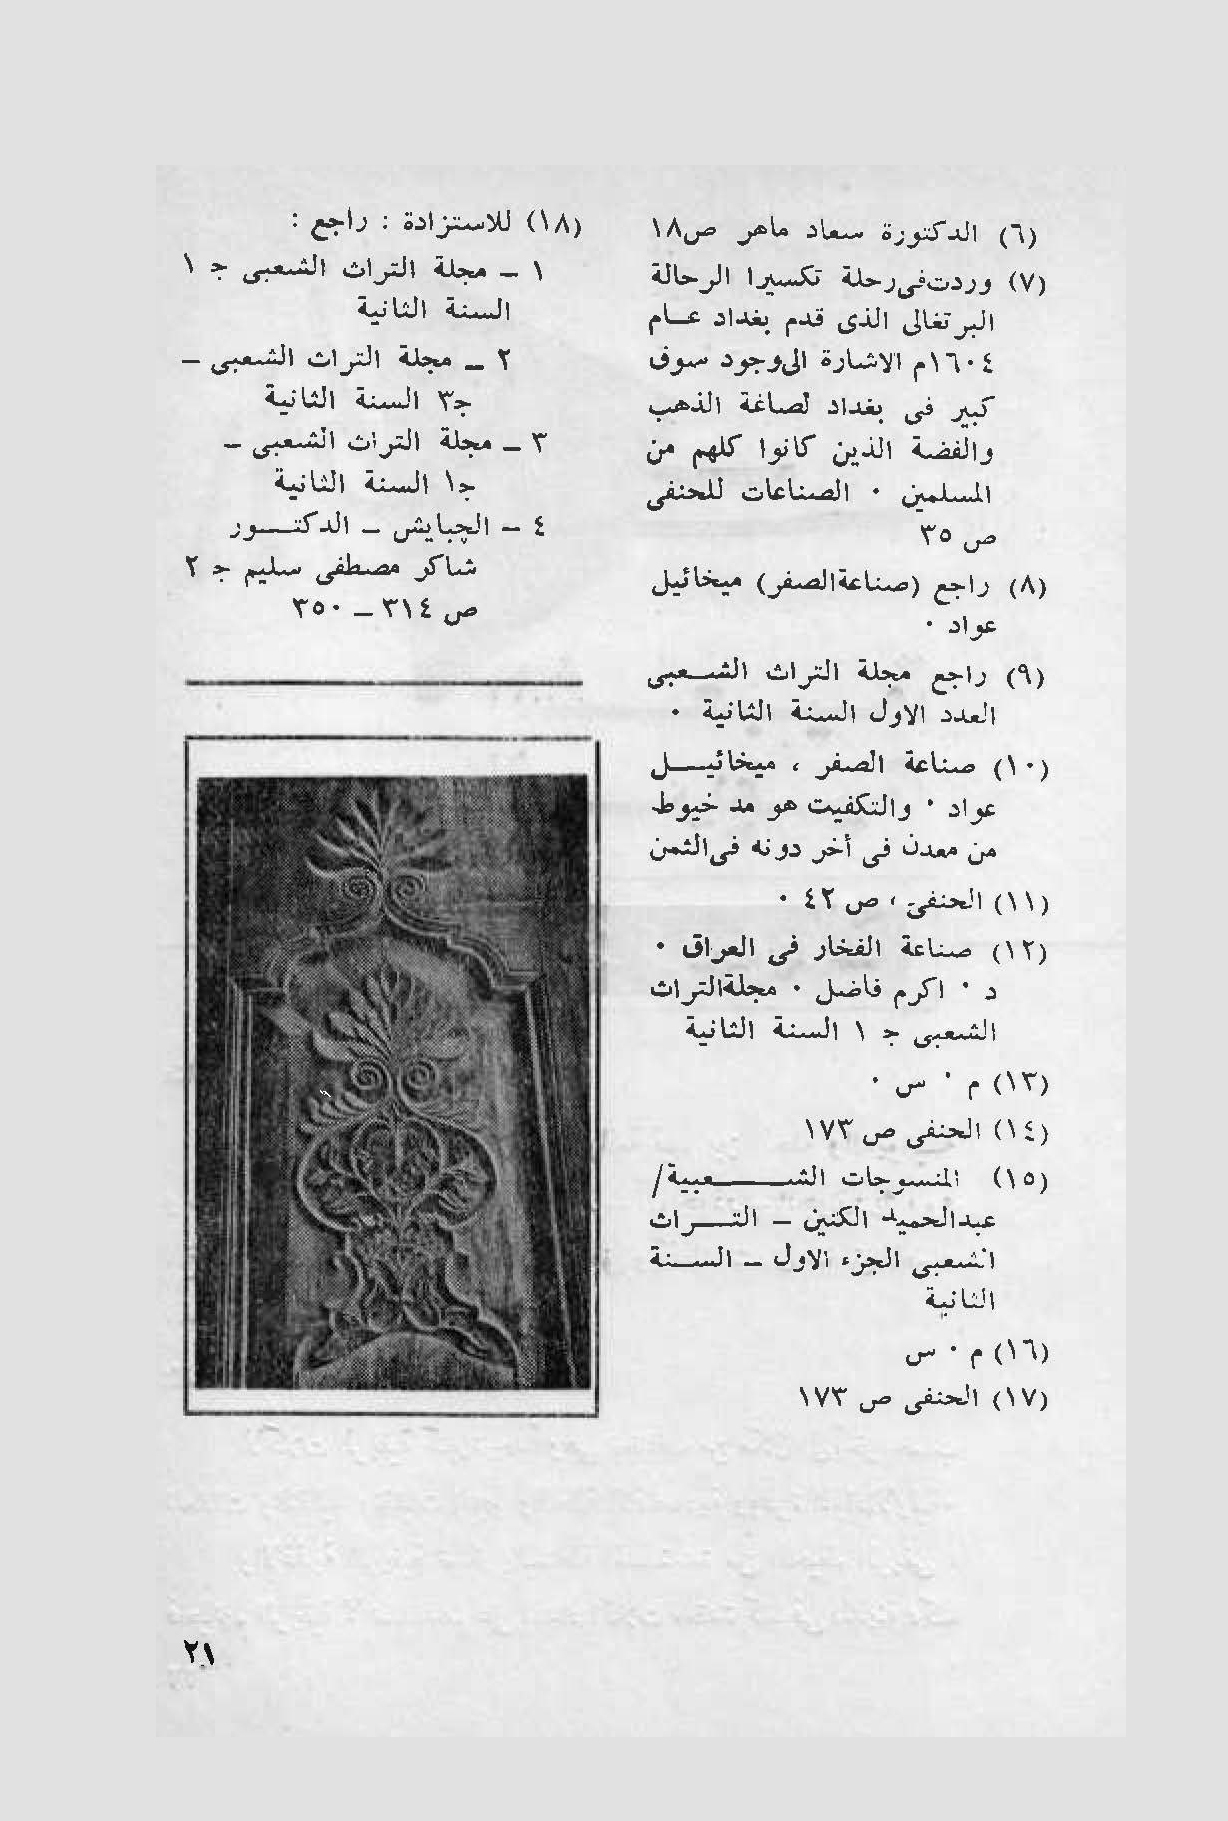 (٦) الدكتورة سعاد ماهر ص١٨
(٧) وردت فى رحلة تكسيرا الرحالة
البرتغالى الذى قدم بغداد عـام
١٦٠٤م الاشارة الى وجود سوق
كبير فى بغداد لصاغة الذهب
والفضة الذين كانوا كلهم من
المسلمين ٠ الصناعات للحنفى
ص ٣٥
(٨) راجع (صناعة الصفر) ميخائيل
عواد ٠
(٩) راجع مجلة التراث الشـعبى
العدد الاول السنة الثانية ٠
(١٠) صناعة الصفر ، ميخائيـل
عواد ٠ والتكفيت هو مد خيوط
من معدن فى أخر دونه فى الثمن
(١١) الحنفى ، ص ٤٢ ٠
(١٢) صناعة الفخار فى العراق ٠
د ٠ اكرم فاضل ٠ مجلة التراث
الشعبى ج ١ السنة الثانية
(١٣) م ٠ س ٠
(١٤) الحنفى ص ١٧٣
(١٥) المنسوجات الشـــعبية/
عبدالحميد الكنين – التـراث
الشعبى الجزء الاول – السـنة
الثانية
(١٦) م ٠ س
(١٧) الحنفى ص ١٧٣
(١٨) للاستزادة : راجع :
١ – مجلة التراث الشعبى ج ١
السنة الثانية
٢ – مجلة التراث الشعبى –
ج٣ السنة الثانية
٣ – مجلة التراث الشعبى –
ج١ السنة الثانية
٤ – الچبايش – الدكتــور
شاكر مصطفى سليم ج ٢
ص ٣١٤ – ٣٥٠
٢١